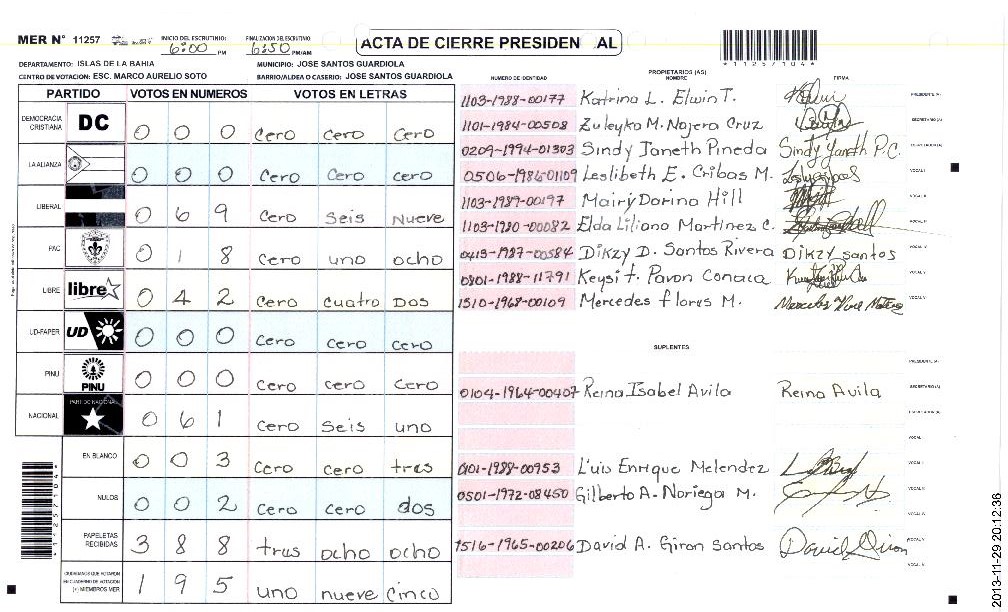 MER N° 11257
INICIO DEL ESCRUTINIO: 6:00 PM
FINALIZACION DEL ESCRUTINIO: 6:50 PM/AM
ACTA DE CIERRE PRESIDEN AL
*11257104*
DEPARTAMENTO: ISLAS DE LA BAHIA
MUNICIPIO: JOSE SANTOS GUARDIOLA
CENTRO DE VOTACION: ESC. MARCO AURELIO SOTO
BARRIO/ALDEA O CASERIO: JOSE SANTOS GUARDIOLA
PARTIDO VOTOS EN NUMEROS VOTOS EN LETRAS
DEMOCRACIA CRISTIANA DC 0 0 0 Cero Cero Cero
LA ALIANZA 0 0 0 Cero Cero cero
LIBERAL 0 6 9 Cero Seis Nueve
PAC 0 1 8 Cero uno ocho
LIBRE libre 0 4 2 Cero Cuatro Dos
UD-FAPER UD 0 0 0 Cero cero cero
PINU PINU 0 0 0 Cero cero Cero
NACIONAL PARTIDO NACIONAL 0 6 1 Cero Seis uno
EN BLANCO 0 0 3 Cero cero tres
NULOS 0 0 2 Cero cero dos
PAPELETAS RECIBIDAS 3 8 8 tres ocho ocho
CIUDADANOS QUE VOTARON EN CUADERNO DE VOTACION (+) MIEMBROS MER 1 9 5 uno nueve cinco
PROPIETARIOS (AS)
NUMERO DE IDENTIDAD NOMBRE FIRMA
1103-1988-00177 Katrina L. Elwin T. PRESIDENTE (A)
1101-1984-00508 Zuleyka M. Najera Cruz SECRETARIO (A)
0209-1994-01303 Sindy Janeth Pineda Sindy Janeth P.C. ESCRUTADOR (A)
0506-1986-01109 Leslibeth E. Cribas M. VOCAL I
1103-1989-00197 Mairy Darina Hill VOCAL II
1103-1980-00082 Elda Liliana Martinez C. VOCAL III
0413-1987-00584 Dikzy D. Santos Rivera Dikzy santos VOCAL IV
0801-1988-11791 Keysi t. Pavon Canaca VOCAL V
1510-1968-00109 Mercedes flores M. VOCAL VI
SUPLENTES
PRESIDENTE (A)
0104-1964-00407 Reina Isabel Avila Reina Avila SECRETARIO (A)
ESCRUTADOR (A)
VOCAL I
0101-1988-00953 Luis Enrique Melendez VOCAL II
0501-1972-08450 Gilberto A. Noriega M. VOCAL III
VOCAL IV
1516-1965-00206 David A. Giron Santos David Giron VOCAL V
VOCAL VI
*11257104*
2013-11-29 20:12:36